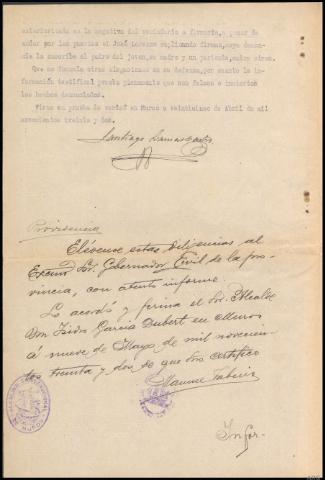 exteriorizada en la negativa del vecindario a favorecerlo, a pesar de
andar por las puertas el José Lorenzo suplicando firmas, cuya denun-
cia la suscribe el padre del joven, su madre y un pariente, entre otros.
Que no formula otras alegaciones en su defensa, por cuanto la in-
formación testifical prueba plenamente que son falsos e inexactos
los hechos denunciados.
Firma en prueba de verdad en Muros a veintiocho de Abril de mil
novecientos treinta y dos.
Santiago Lamas
Providencia
Elévense estas diligencias al
Excmo Sr. Gobernador Civil de la pro-
vincia, con atento informe.
Lo acordó y firma el Sr. Alcalde
Don Isidro García Dubert en Muros
á nueve de Mayo de mil novecien-
tos treinta y dos de que doy certifico
Manuel Fabeiro
Infor-